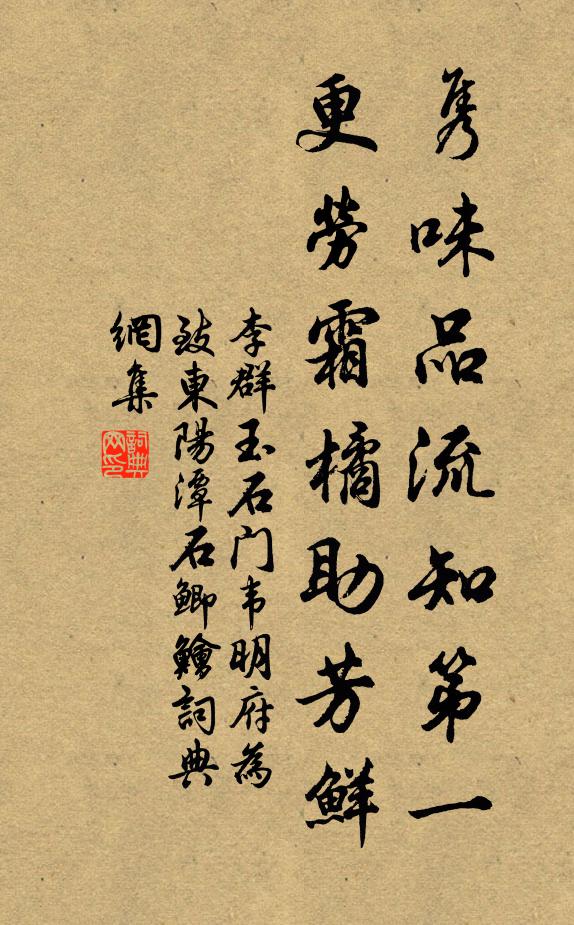 隽味品流知第一
更勞霜橘助芳鮮
李群玉石门韦明府為
致東陽潭石鯽鱠詞典
網集
詞典
网印